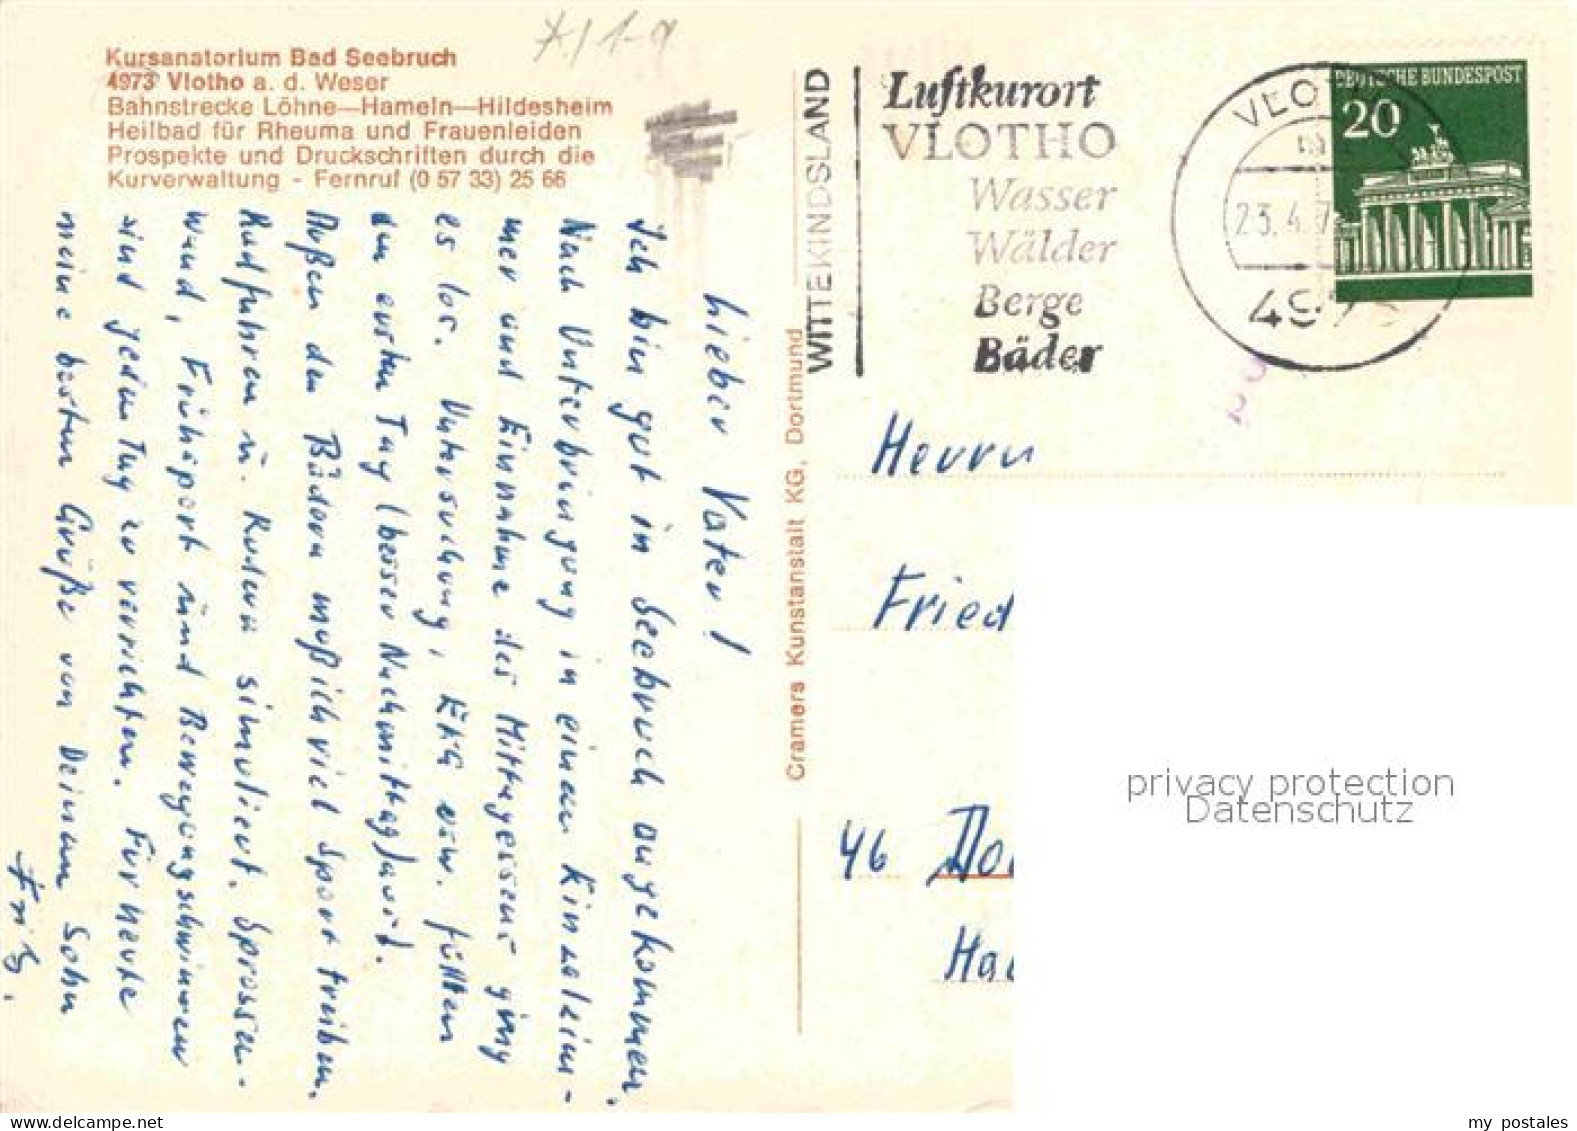 Kursanatorium Bad Seebruch
4973 Vlotho a. d. Weser
Bahnstrecke Löhne—Hameln—Hildesheim
Heilbad für Rheuma und Frauenleiden
Prospekte und Druckschriften durch die
Kurverwaltung - Fernruf (0 57 33) 25 66
Lieber Vater!
Ich bin gut in Seebruch angekommen.
Nach Unterbringung in einem Einzelzim-
mer und Einnahme des Mittagessens ging
es los. Untersuchung, EKG usw. füllten
den ersten Tag (besser Nachmittag) aus.
Außer den Bädern muß ich viel Sport treiben.
Radfahren u. Rudern simuliert. Sprossen-
wand, Frühsport und Bewegungsschwimmen
sind jeden Tag zu verrichten. Für heute
meine besten Grüße von Deinem Sohn
Fritz.
Cramers Kunstanstalt KG, Dortmund
WITTEKINDSLAND
Luftkurort
VLOTHO
Wasser
Wälder
Berge
Bäder
VLO
23. 4. 7
497
DEUTSCHE BUNDESPOST
20
Herrn
Fried
46 Do
Ha
privacy protection
Datenschutz
my postales